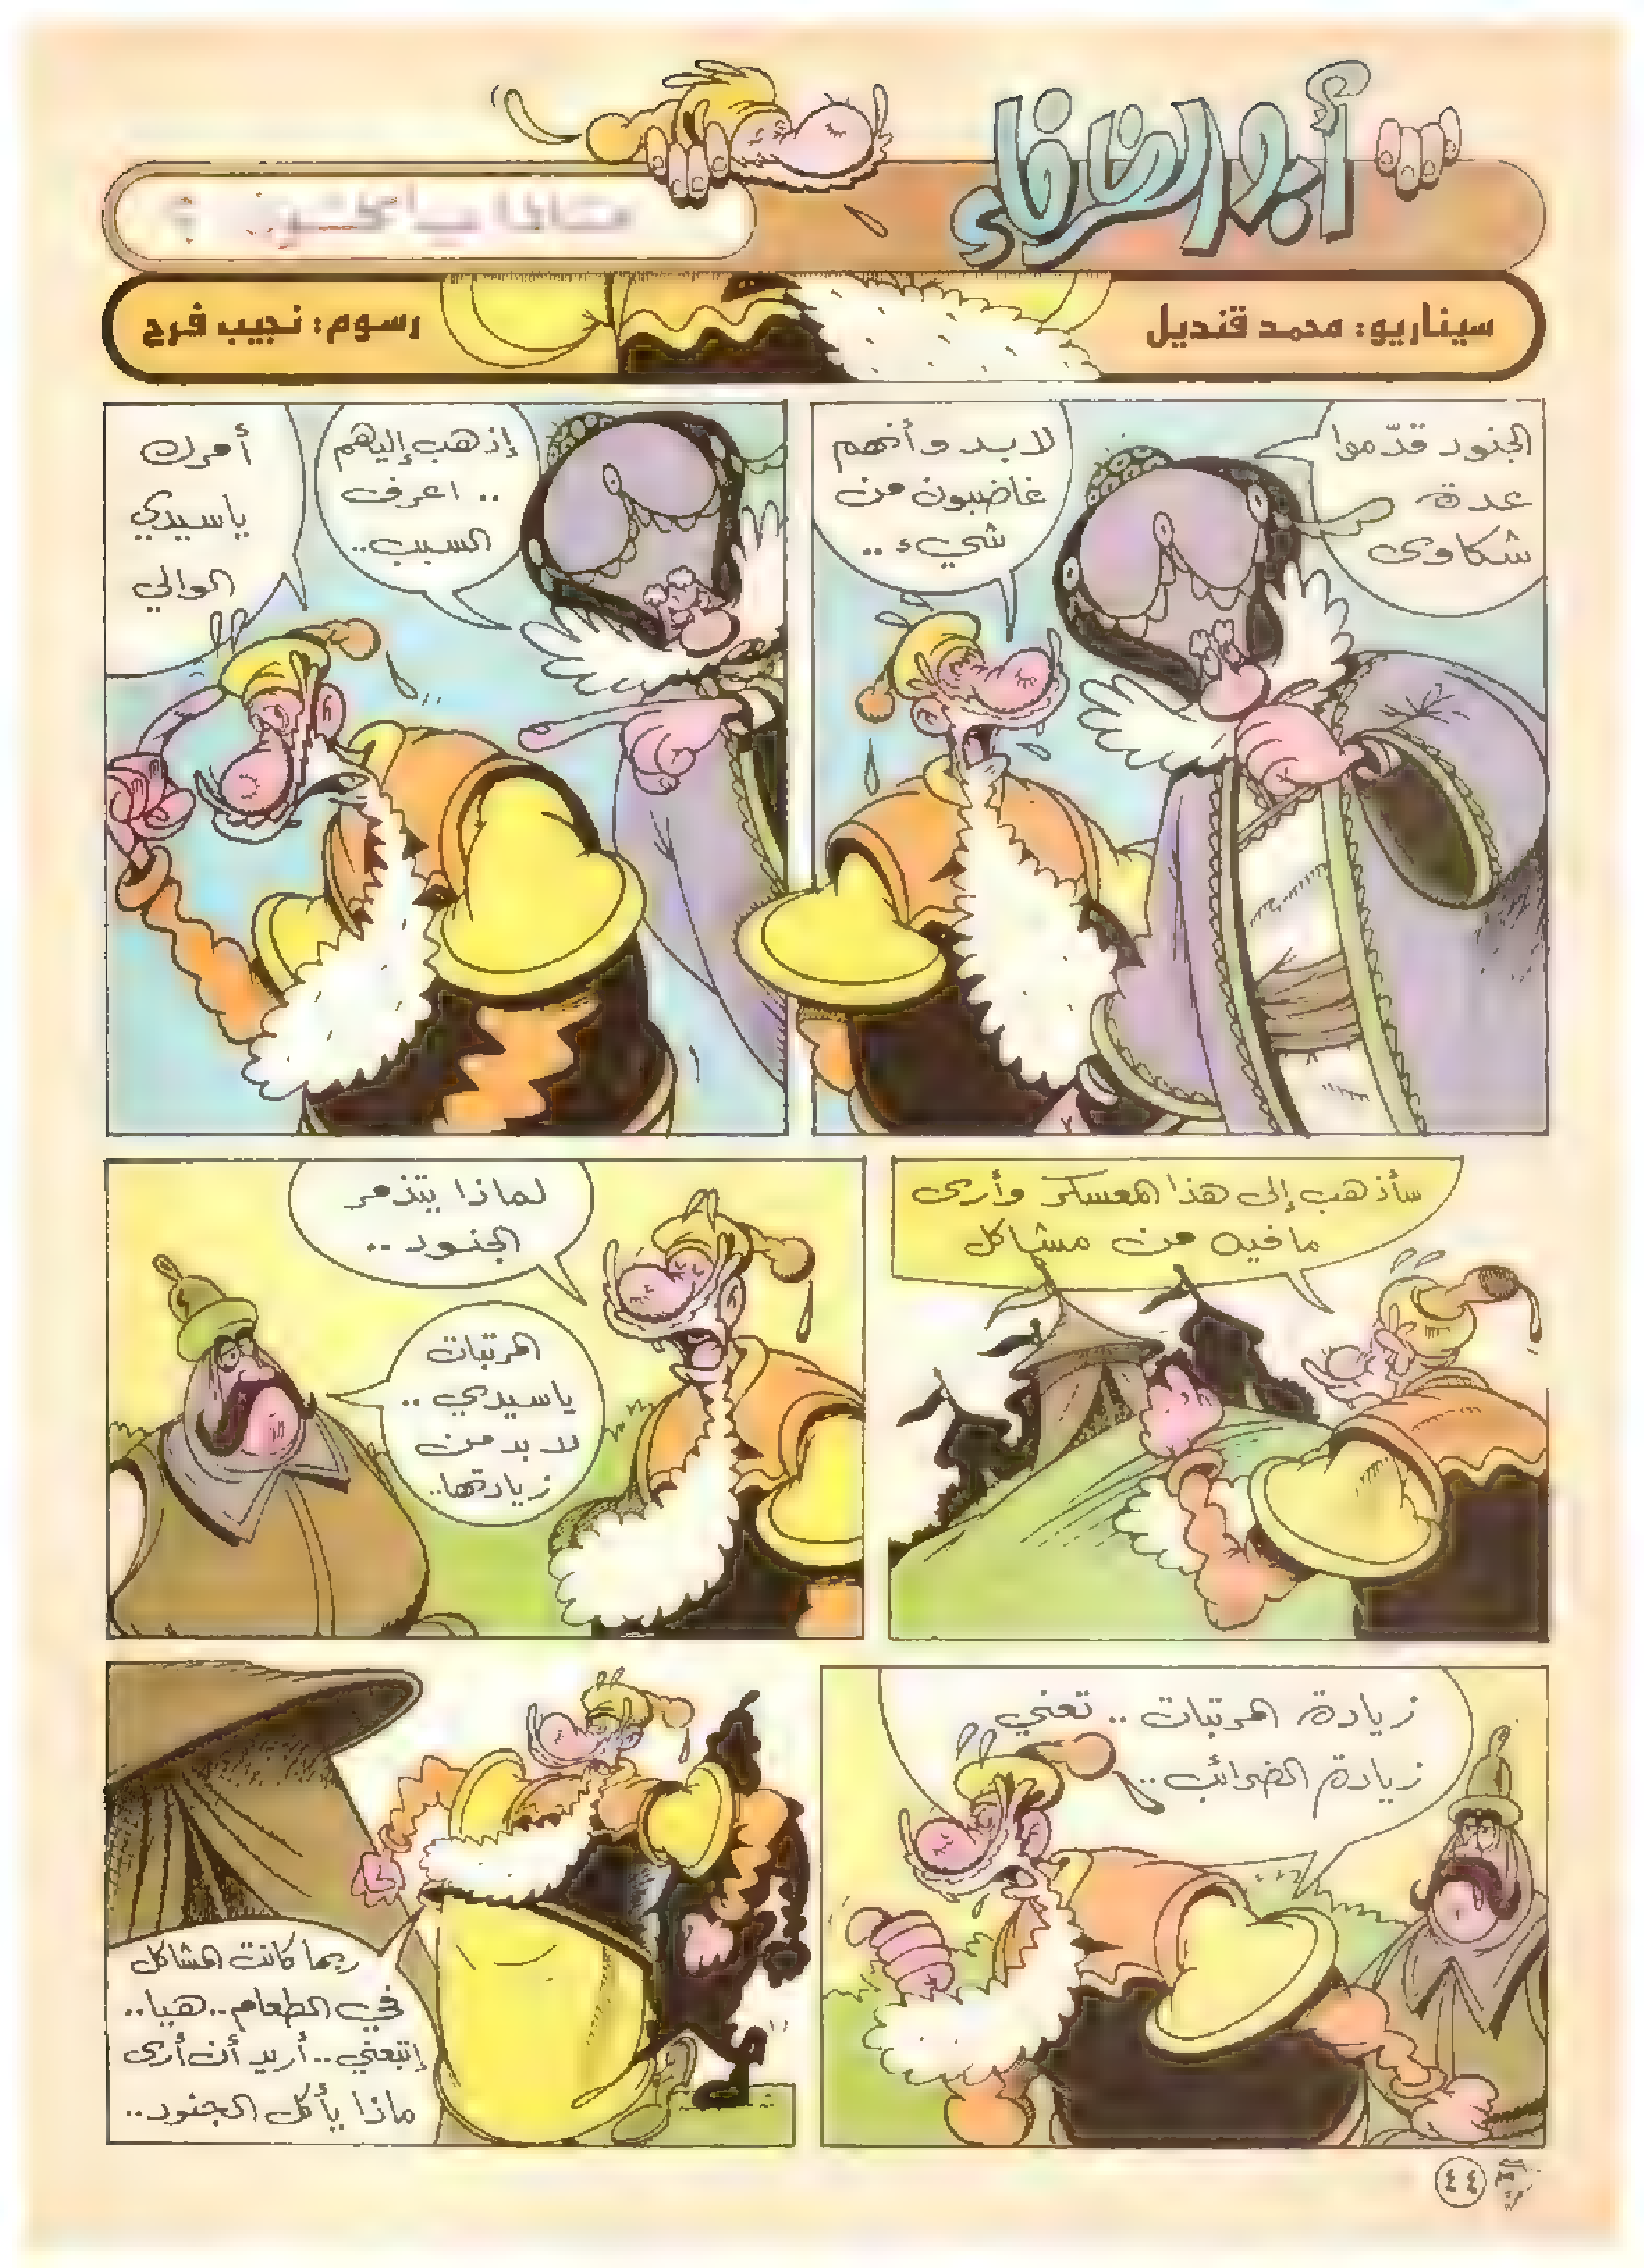 أبو الظرفاء
سيناريو: محمد قنديل
رسوم: نجيب فرح
الجنود قدّموا
عدة
شكاوى
لا بد وأنهم
غاضبون من
شيء ..
إذهب إليهم
.. اعرف
السبب..
أمرك
ياسيدي
الوالي
سأذهب إلى هذا المعسكر وأرى
مافيه من مشاكل
لماذا يتذمر
الجنود ..
المرتبات
ياسيدي ..
لا بد من
زيادتها..
زيادة المرتبات .. تعني
زيادة الضرائب ..
ربما كانت المشاكل
في الطعام.. هيا..
إتبعني.. أريد أن أرى
ماذا يأكل الجنود..
٤٤